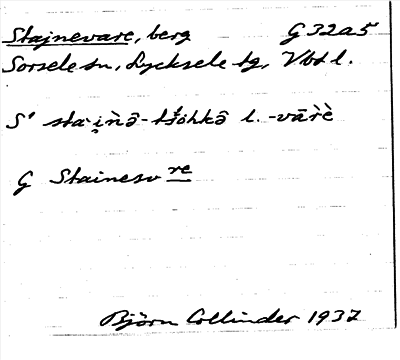 Stajnevare, berg G32a5
Sorsele sn, Lycksele tg, Vbt l.
S' sta·i̯ǹə̂-tšóhkə̂ l. -vārè̀
G Stainesv re
Björn Collinder 1937